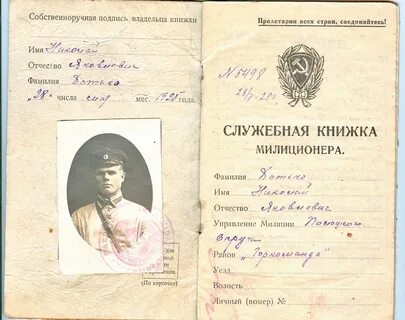 Собственноручная подпись владельца книжки
Имя Николай
Отчество Яковлевич
Фамилия Дотько
"28" числа мая мес. 1925 года.
(По карточке)
Пролетарии всех стран, соединяйтесь!
№ 5498
СЛУЖЕБНАЯ КНИЖКА
МИЛИЦИОНЕРА.
Фамилия Дотько
Имя Николай
Отчество Яковлевич
Управление Милиции Полоцкого
Округа
Район "Горкоманда"
Уезд
Волость
Личный (номер) №